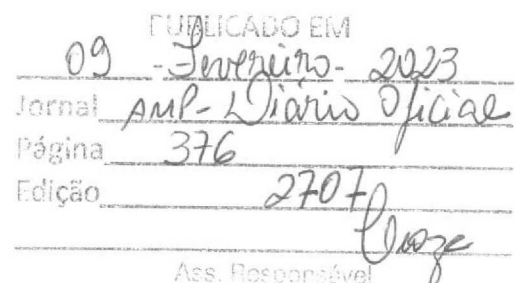 PUBLICADO EM
09 - Fevereiro - 2023
Jornal AMP - Diário Oficial
Página 376
Edição 2707
Ass. Responsável